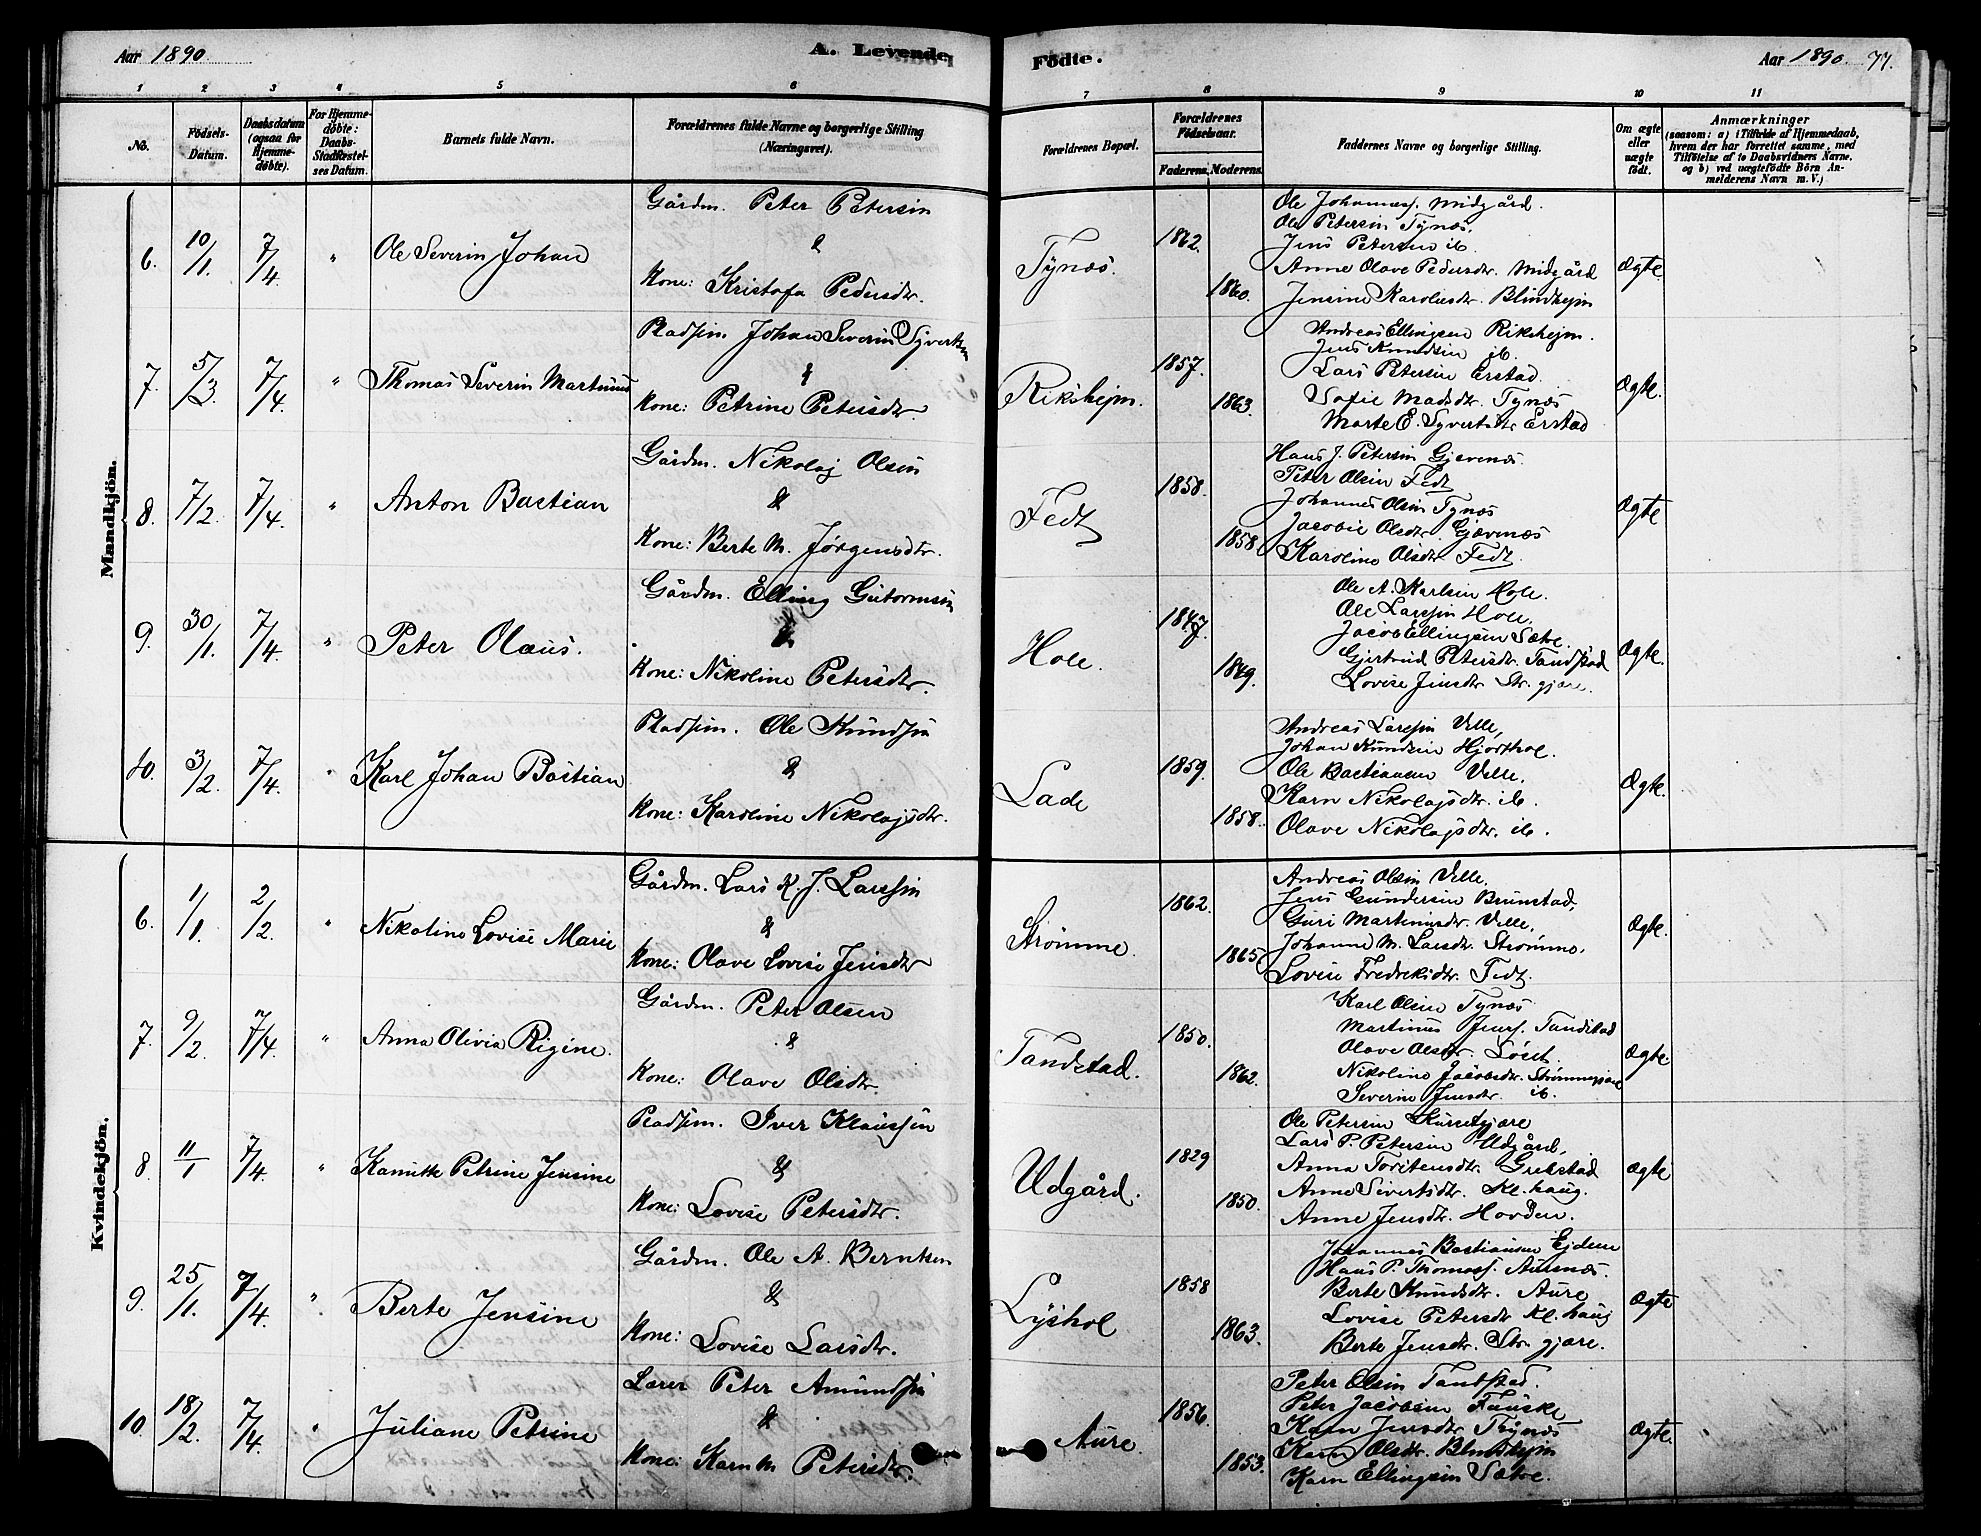 Aar 1890
A. Levende
Fødte.
Aar 1890. 77.
1 2 3 4 5 6 7 8 9 10 11
No.
Fødsels-Datum.
Daabsdatum (ogsaa for Hjemmedøbte).
For Hjemmedøbte: Daabs-Stadfæstelses Datum.
Barnets fulde Navn.
Forældrenes fulde Navne og borgerlige Stilling (Næringsvei).
Forældrenes Bopæl.
Forældrenes Fødselsaar.
Faderens. Moderens.
Faddernes Navne og borgerlige Stilling.
Om ægte eller uægte født.
Anmærkninger
(saasom: a) i Tilfælde af Hjemmedaab, hvem der har forrettet samme, med Tilføielse af to Daabsvidners Navne, og b) ved uægtefødte Børn Anmelderens Navn m. V.)
Mandkjön.
6. 10/1 7/4 " Ole Severin Johan
Gårdm. Peter Petersen
&
Kone: Kristofa Pedersdtr.
Tynæs. 1862. 1860.
Ole Johannesj. Midgård.
Ole Petersen Tynæs.
Jens Petersen ib.
Anne Olave Pedersdtr. Midgård
Jensine Karolusdtr. Blindhejm
Ægte.
7. 5/3 7/4. " Thomas Severin Martinus
Pladsm. Johan Severin Syvertsen
&
Kone: Petrine Petersdtr
Rikshejm. 1857. 1863.
Andreas Ellingsen Rikshejm.
Jens Knudsen ib.
Lars Petersen Erstad.
Sofie Madsdtr. Tynæs
Marte E. Syvertsdtr Erstad
Ægte.
8. 7/2. 7/4. " Anton Bastian
Gårdm. Nikolaj Olsen
&
Kone: Berte M. Jørgensdtr.
Fedt 1858. 1858.
Hans J. Petersen Gjævenæs.
Peter Olsen Fedt
Johannes Olsen Tynæs
Jacobie Olsdtr. Gjævenæs
Karoline Olsdtr. Fedt.
Ægte
9. 30/1. 7/4. " Peter Olaus.
Gårdm. Elling Gutormsen
&
Kone: Nikoline Petersdtr.
Hole. 1847. 1849.
Ole A. Karlsen Hole.
Ole Larssen Hole.
Jacob Ellingsen Sætre.
Gjertrud Petersdtr. Tandstad
Lovise Jensdtr Str. gjære.
Ægte.
10. 3/2. 7/4. " Karl Johan Bastian
Pladsm. Ole Knudsen
&
Kone: Karoline Nikolajsdtr.
Lade 1859. 1858.
Andreas Larssen Velle,
Johan Knudsen Hjorthol.
Ole Bastiansen Velle.
Karn Nikolajsdtr. ib.
Olave Nikolajsdtr. ib.
Ægte.
Kvindekjön.
6. 1/1. 2/2. " Nikoline Lovise Marie
Gårdm. Lars K. J. Larssen
&
Kone: Olave Lovise Jensdtr
Strømme. 1862. 1865
Andreas Olsen Velle.
Jens Gundersen Brunstad,
Guri Martinusdtr. Velle.
Johanne M. Larsdtr. Strømme.
Lovise Fredriksdtr. Fedt.
Ægte.
7. 9/2. 7/4. " Anna Olivia Rigine.
Gårdm. Peter Olsen
&
Kone: Olave Olsdtr.
Tandstad. 1850. 1862.
Karl Olsen Tynæs
Martinus Jensj. Tandstad
Olave Olsdtr. Løset.
Nikoline Jacobsdtr. Strømmegjære
Severine Jensdtr. ib.
Ægte.
8 11/1 7/4. " Kamitte Petrine Jensine
Pladsm. Iver Klaussen
&
Kone: Lovise Petersdtr.
Udgård. 1829 1850.
Ole Petersen Kursetgjære
Lars P. Petersen Udgård.
Anna Torstensdtr. Grebstad
Anne Sivertsdtr. Kl. haug.
Anne Jensdtr. Hovden.
Ægte
9. 25/1. 7/4. " Berte Jensine
Gårdm. Ole A. Berntsen
&
Kone: Lovise Larsdtr.
Lyshol 1858 1863.
Johannes Bastiansen Ejdem
Hans P. Thomasj. Aursnæs.
Berte Knudsdtr. Aure
Lovise Petersdtr Kl. haug
Berte Jensdtr. Str. gjære.
Ægte
10. 18/2. 7/4. " Juliane Petrine
Lærer Peter Amundsen
&
Kone: Karn M. Petersdtr.
Aure. 1856. 1853.
Peter Olsen Tandstad.
Peter Jacobsen Fauske
Karn Jensdtr Tynæs
Karn Olsdtr. Blindhejm
Karn Ellingsen Sætre.
Ægte.